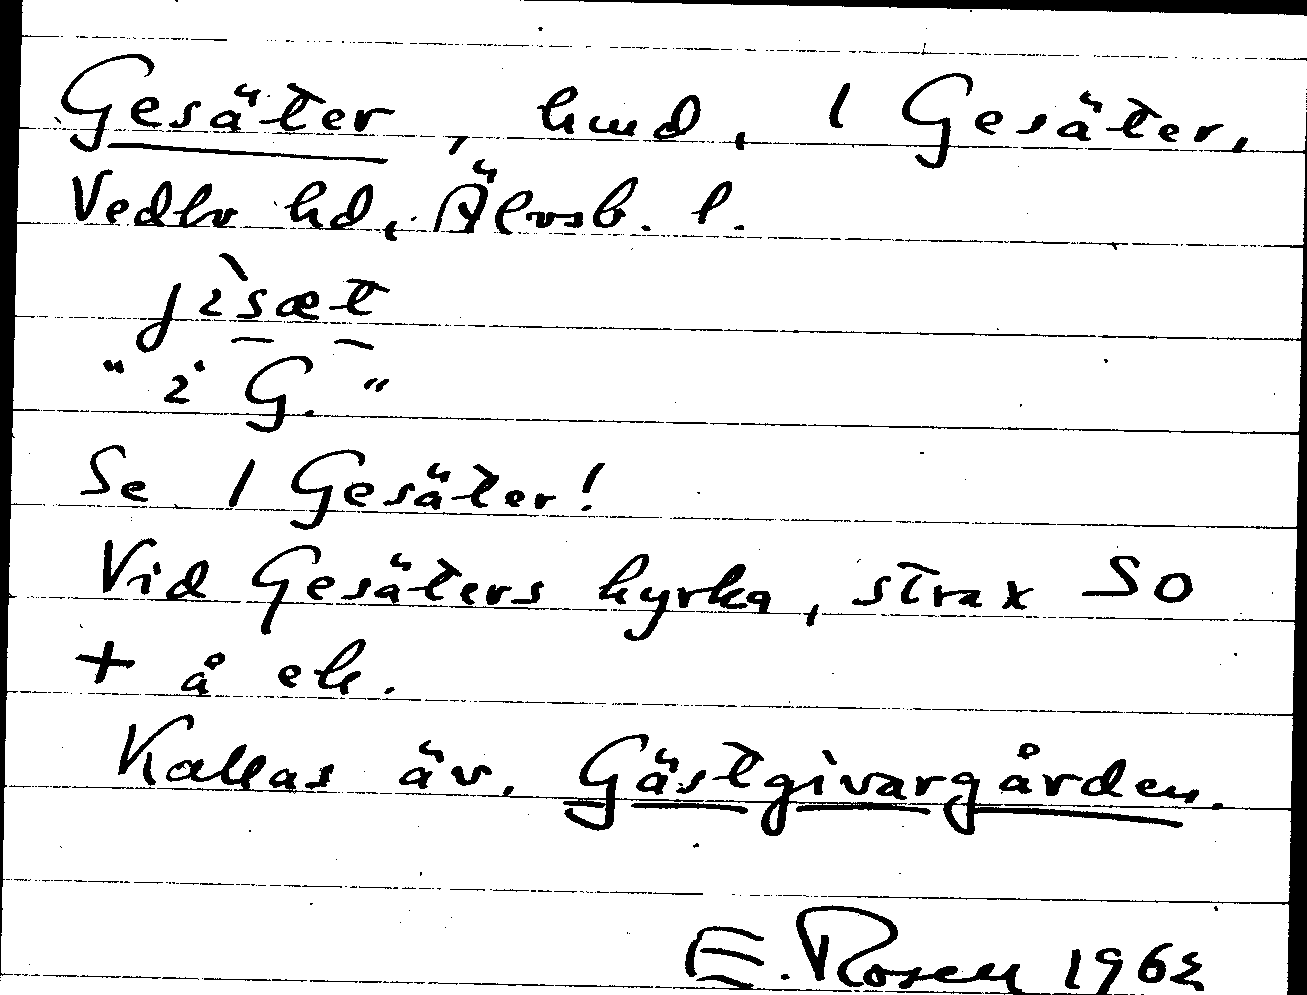 Gesäter, hmd, 1 Gesäter,
Vedbo hd, Älvsb. l.
jìsæt
"i G."
Se 1 Gesäter!
Vid Gesäters kyrka, strax SO
+ å ek.
Kallas äv. Gästgivargården.
E. Rosen 196